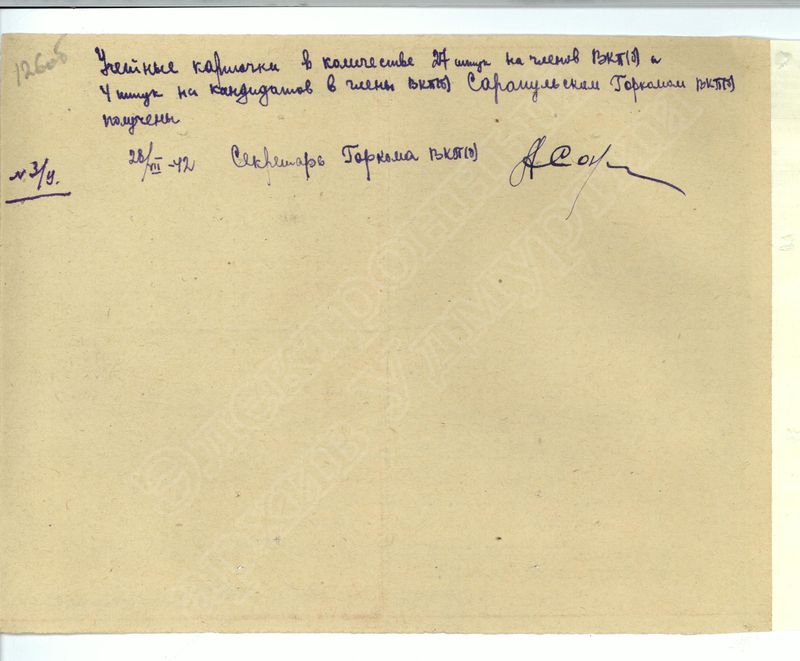 126об
Учетные карточки в количестве 27 штук на членов ВКП(б) и
4 штук на кандидатов в члены ВКП(б) Сарапульским Горкомом ВКП(б)
получены
28/III-42 Секретарь Горкома ВКП(б)
Электронный
архив Удмуртии